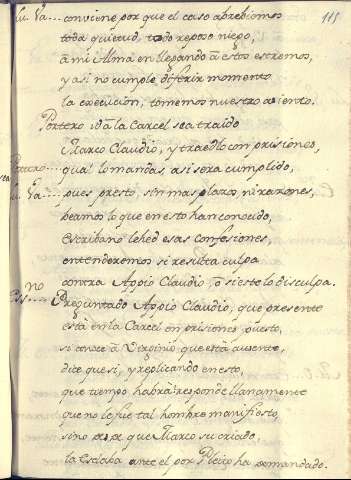 Lu. Va.... conviene, por que el caso abrebiemos 115
toda quietud, todo reposo niego,
â mi Alma en llegando â estos estremos,
y asi no cumple diferir momento
la execucion, tomemos nuestro asiento.
Portero id â la Carcel sea traido
Marco Claudio, y traedlo con prisiones,
Portero... qual lo mandas, asi sera cumplido,
Lu. Va... pues presto, sin mas plazos, ni razones,
beamos lo que en esto han conocido,
escribano lehed esas confesiones,
entenderemos si resulta culpa
contra Appio Claudio, ô si este lo disculpa.
Ess.no.... Preguntado Appio Claudio, que presente
està en la Carcel en prisiones puesto,
si conoce â Virginio que està ausente,
dice que si, y replicando en esto,
que tiempo habrà responde llanamente
que no le fue tal hombre manifiesto,
sino es por que Marco su criado,
la Esclaba ante el por Pleito ha demandado.